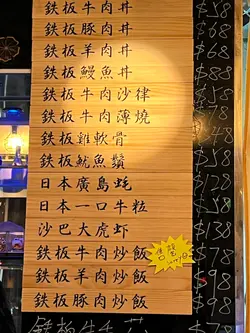 鉄板牛肉丼 $58
鉄板豚肉丼 $68
鉄板羊肉丼 $68
鉄板鰻魚丼 $88
鉄板牛肉沙律 $58
鉄板牛肉薄燒 $48
鉄板雞軟骨 $48
鉄板魷魚鬚 $58
日本廣島蚝 $128
日本一口牛粒 $138
沙巴大虎虾 $58
鉄板牛肉炒飯 $78
鉄板羊肉炒飯 $98
鉄板豚肉炒飯 $98
$78